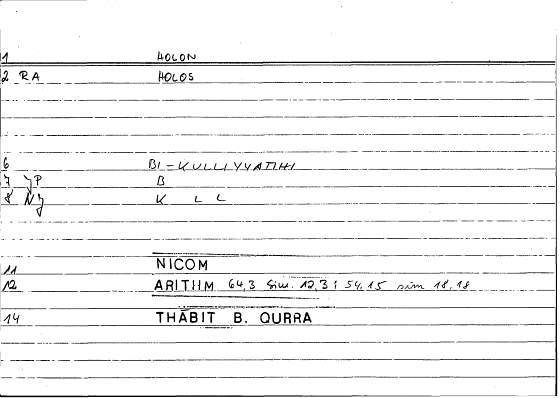 1 HOLON
2 RA HOLOS
6 BI-KULLIYYATIHI
7 JP B
8 NJ K L L
11 NICOM
12 ARITHM 64,3 sim. 12,3; 54,15 sim 18,18
14 THĀBIT B. QURRA